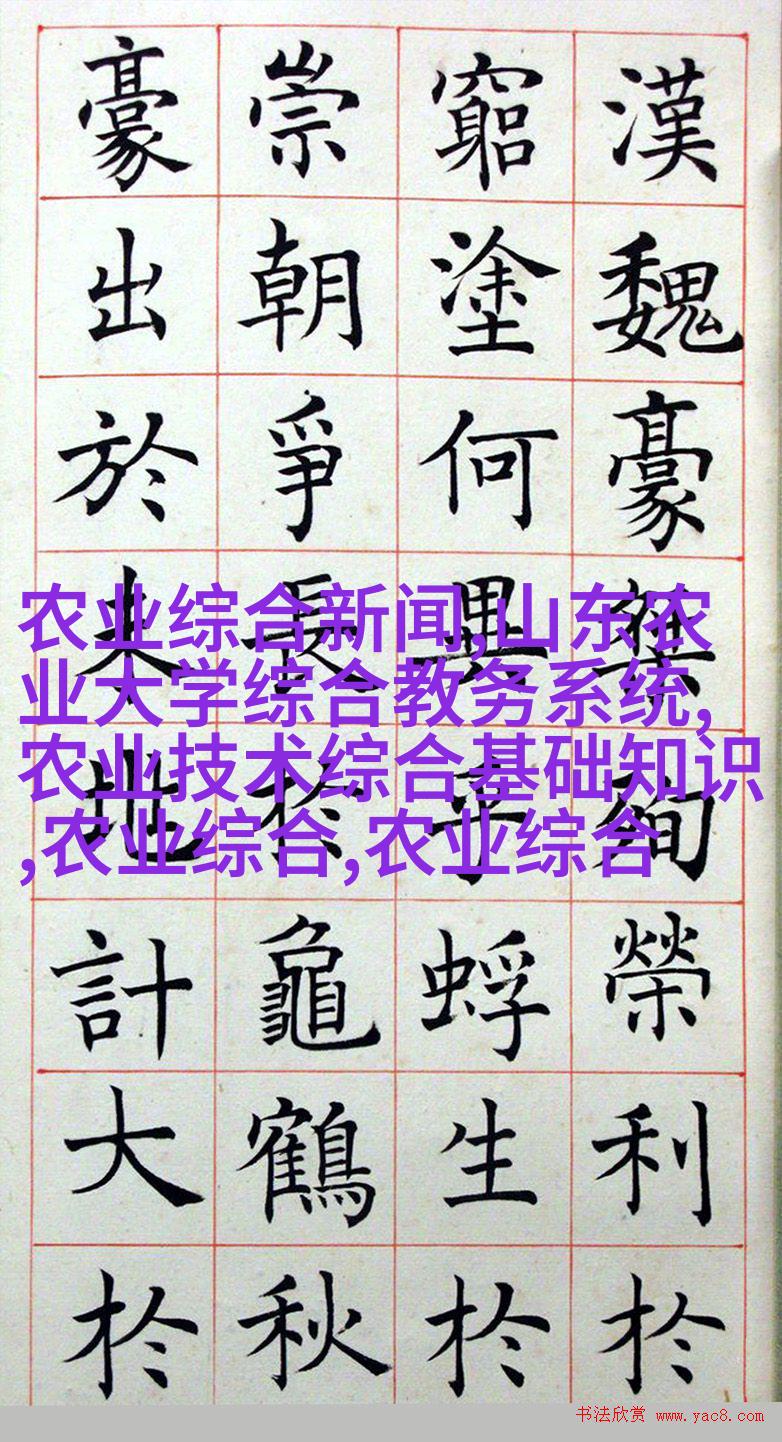 漢魏豪桀殉榮利扵
窮塗何異乎蜉生扵
崇朝爭長扵龜鶴秋
豪出於地計大扵
农业综合新闻,山东农
业大学综合教务系统,
农业技术综合基础知识
,农业综合,农业综合
书法欣赏 www.yac8.com